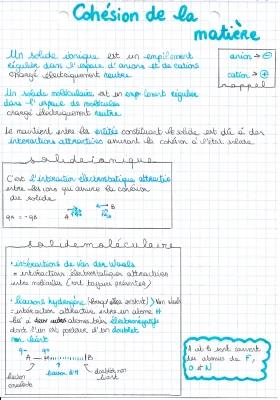 Cohésion de la
matière
Un solide ionique est un empilement
régulier dans l'espace d'anions et de cations
chargé électriquement neutre
anion → ⊖
cation → ⊕
rappel
Un solide moléculaire est un empilement régulier
dans l'espace de molécules
chargé électriquement neutre
Le maintient entre les entités constituant le solide est dû à des
interactions attractives assurant la cohésion à l'état solide.
solide ionique
C'est l'interaction électrostatique attractive
entre les ions qui assure la cohésion
du solide
qA = -qB
A
B
solide moléculaire
• interactions de Van der Waals
= interactions électrostatiques attractives
entre molécules (sont toujours présentes)
• liaisons hydrogène (lorsqu'elles existent) > Van der Waals
= interaction attractive entre un atome H
lié à deux autres atomes très électronégatifs
dont l'un est porteur d'un doublet
non liant
A — H |B
liaison
covalente
liaison H
doublet non
liant
A et B sont souvent
des atomes de F,
O et N